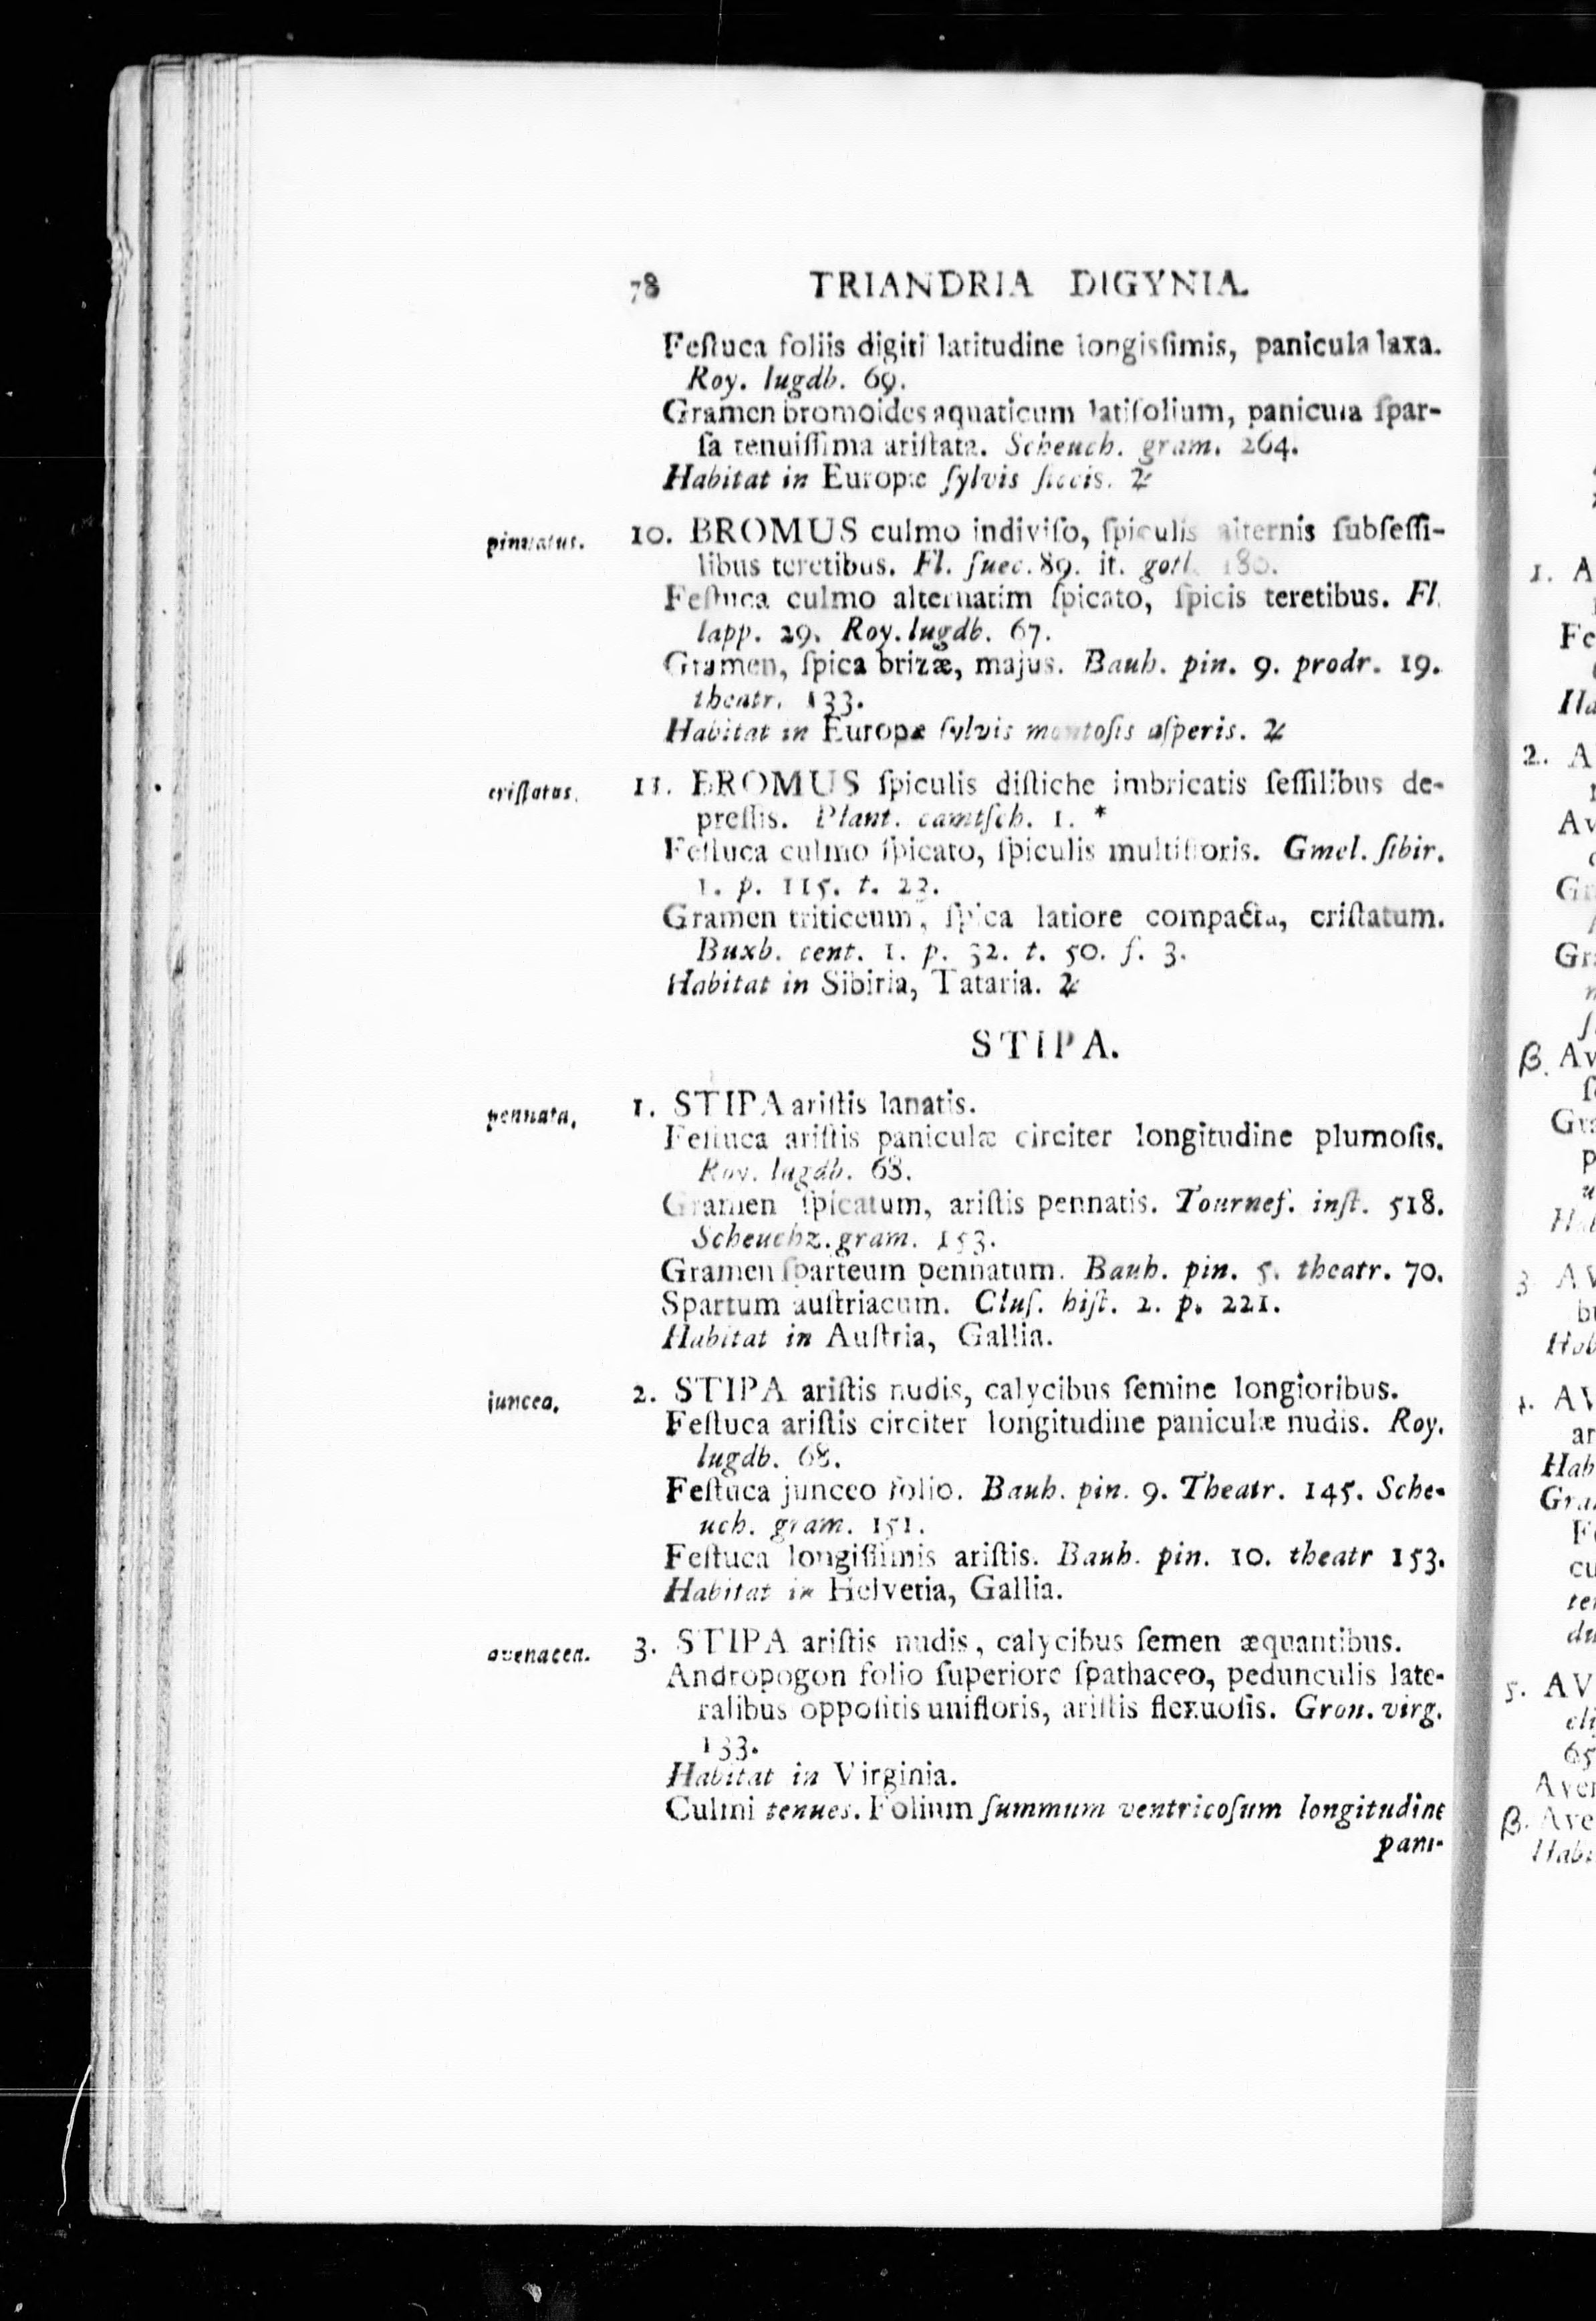 78 TRIANDRIA DIGYNIA.
Feſtuca foliis digiti latitudine longisſimis, panicula laxa.
Roy. lugdb. 69.
Gramen bromoides aquaticum latifolium, panicula ſpar-
ſa tenuiſſima ariſtata. Scheuch. gram. 264.
Habitat in Europæ ſylvis ſiccis. ♃
pinnatus. 10. BROMUS culmo indiviſo, ſpiculis alternis ſubſeſſi-
libus teretibus. Fl. ſuec. 89. it. gotl. 180.
Feſtuca culmo alternatim ſpicato, ſpicis teretibus. Fl.
lapp. 29. Roy. lugdb. 67.
Gramen, ſpica brizæ, majus. Bauh. pin. 9. prodr. 19.
theatr. 133.
Habitat in Europæ ſylvis montoſis aſperis. ♃
criſtatus. 11. BROMUS ſpiculis diſtiche imbricatis ſeſſilibus de-
preſſis. Plant. camtſch. 1. *
Feſtuca culmo ſpicato, ſpiculis multifloris. Gmel. ſibir.
1. p. 115. t. 23.
Gramen triticeum, ſpica latiore compacta, criſtatum.
Buxb. cent. 1. p. 32. t. 50. f. 3.
Habitat in Sibiria, Tataria. ♃
STIPA.
pennata. 1. STIPA ariſtis lanatis.
Feſtuca ariſtis paniculæ circiter longitudine plumoſis.
Roy. lugdb. 68.
Gramen ſpicatum, ariſtis pennatis. Tournef. inſt. 518.
Scheuchz. gram. 153.
Gramen ſparteum pennatum. Bauh. pin. 5. theatr. 70.
Spartum auſtriacum. Cluſ. hiſt. 2. p. 221.
Habitat in Auſtria, Gallia.
juncea. 2. STIPA ariſtis nudis, calycibus ſemine longioribus.
Feſtuca ariſtis circiter longitudine paniculæ nudis. Roy.
lugdb. 68.
Feſtuca junceo folio. Bauh. pin. 9. Theatr. 145. Sche-
uch. gram. 151.
Feſtuca longiſſimis ariſtis. Bauh. pin. 10. theatr 153.
Habitat in Helvetia, Gallia.
avenacea. 3. STIPA ariſtis nudis, calycibus ſemen æquantibus.
Andropogon folio ſuperiore ſpathaceo, pedunculis late-
ralibus oppoſitis unifloris, ariſtis flexuoſis. Gron. virg.
133.
Habitat in Virginia.
Culmi tenues. Folium ſummum ventricoſum longitudine
pani-